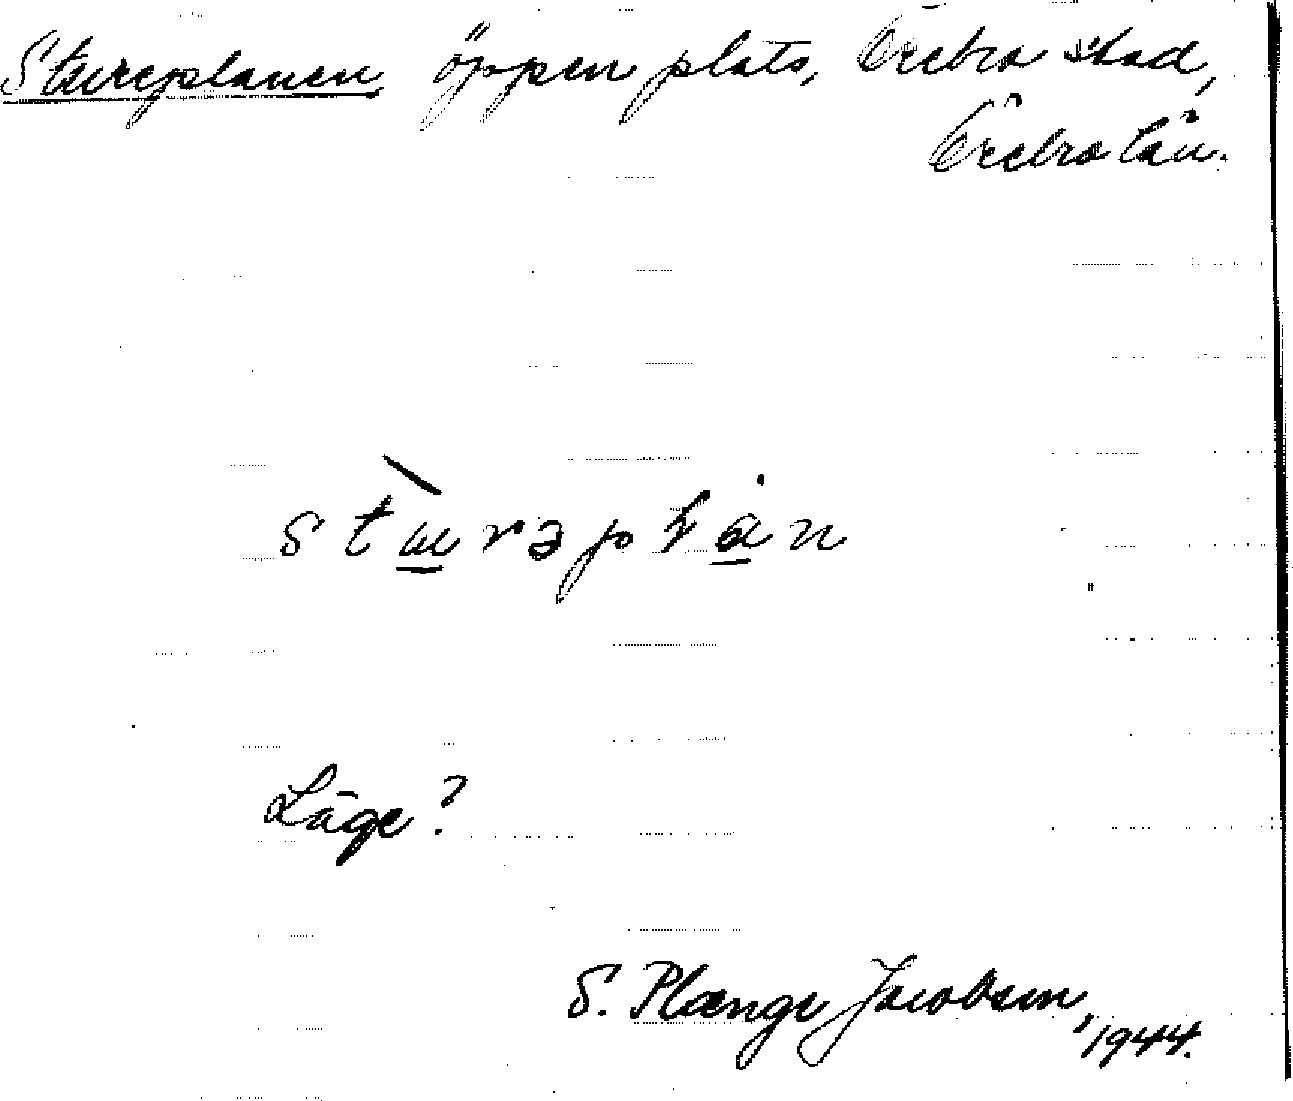 Stureplanen, öppen plats, Örebro stad,
Örebro län.
Läge?
S. Plænge Jacobsen,
1944.